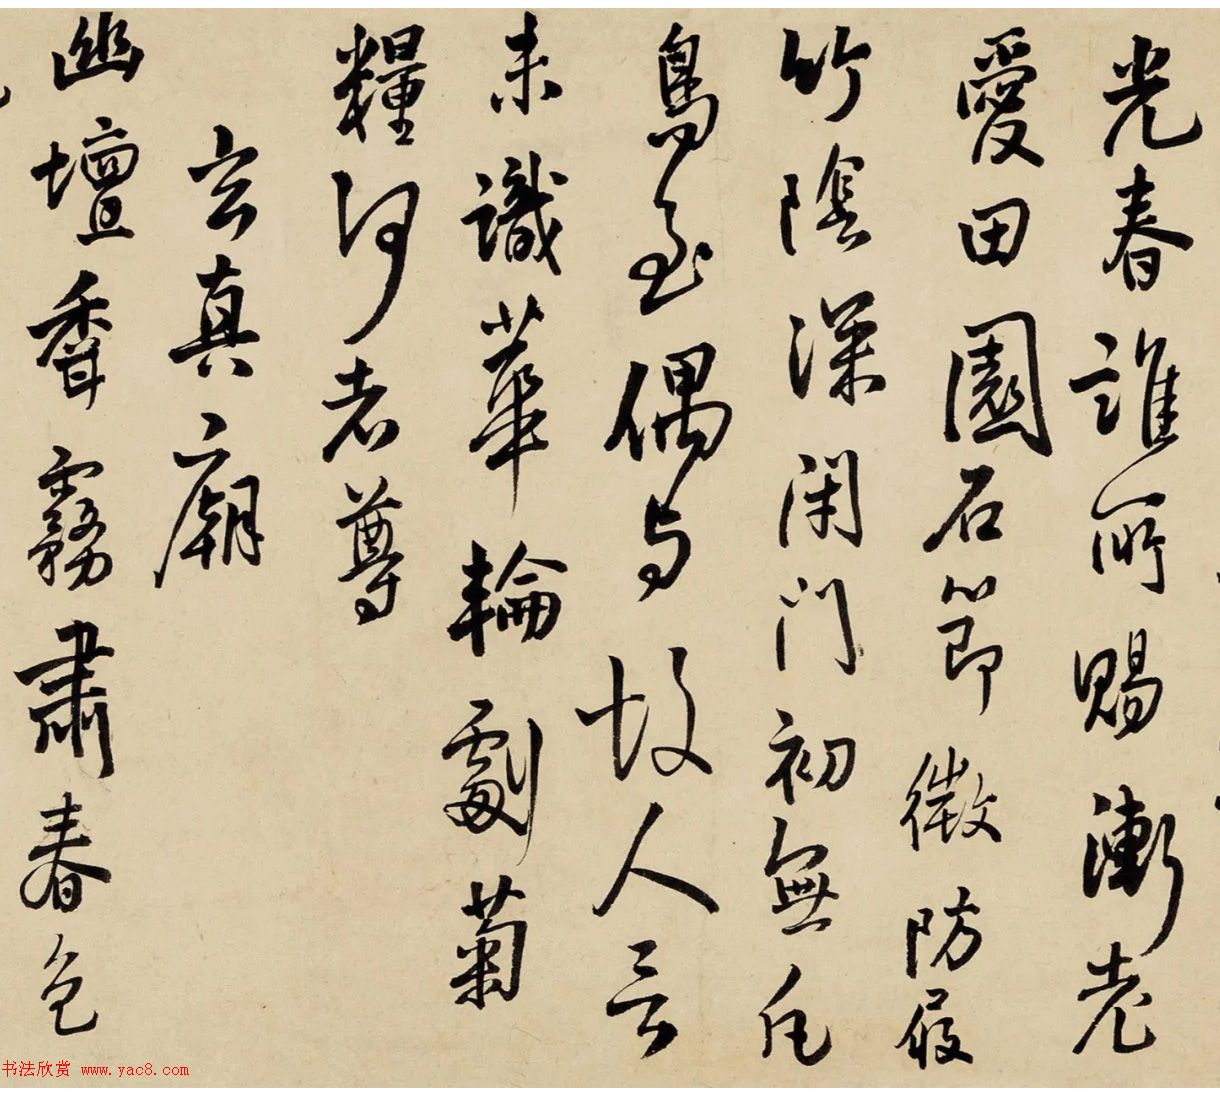 光春誰所賜漸老
愛田園石節微防屐
竹陰深閉門初無凡
鳥至偶与故人言
未識華輪劇菊
糧何老尊
玄真廟
幽壇香霧肅春色
书法欣赏 www.yac8.com